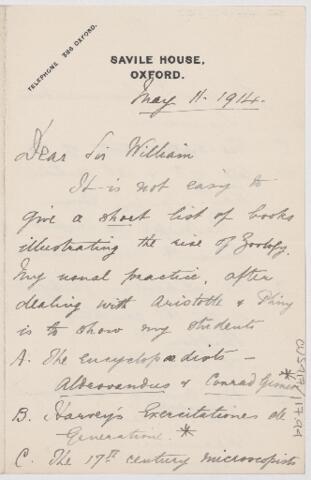 TELEPHONE 386 OXFORD.
SAVILE HOUSE,
OXFORD.
May 11. 1914.
Dear Sir William
It is not easy to
give a short list of books
illustrating the rise of Zoology.
My usual practice, after
dealing with Aristotle & Pliny
is to show my students
A. The encyclopædists –
Aldrovandus & Conrad Gesner *
B. Harvey's Exercitationes de
Generatione. *
C. The 17th century microscopists
CUS417/117.94